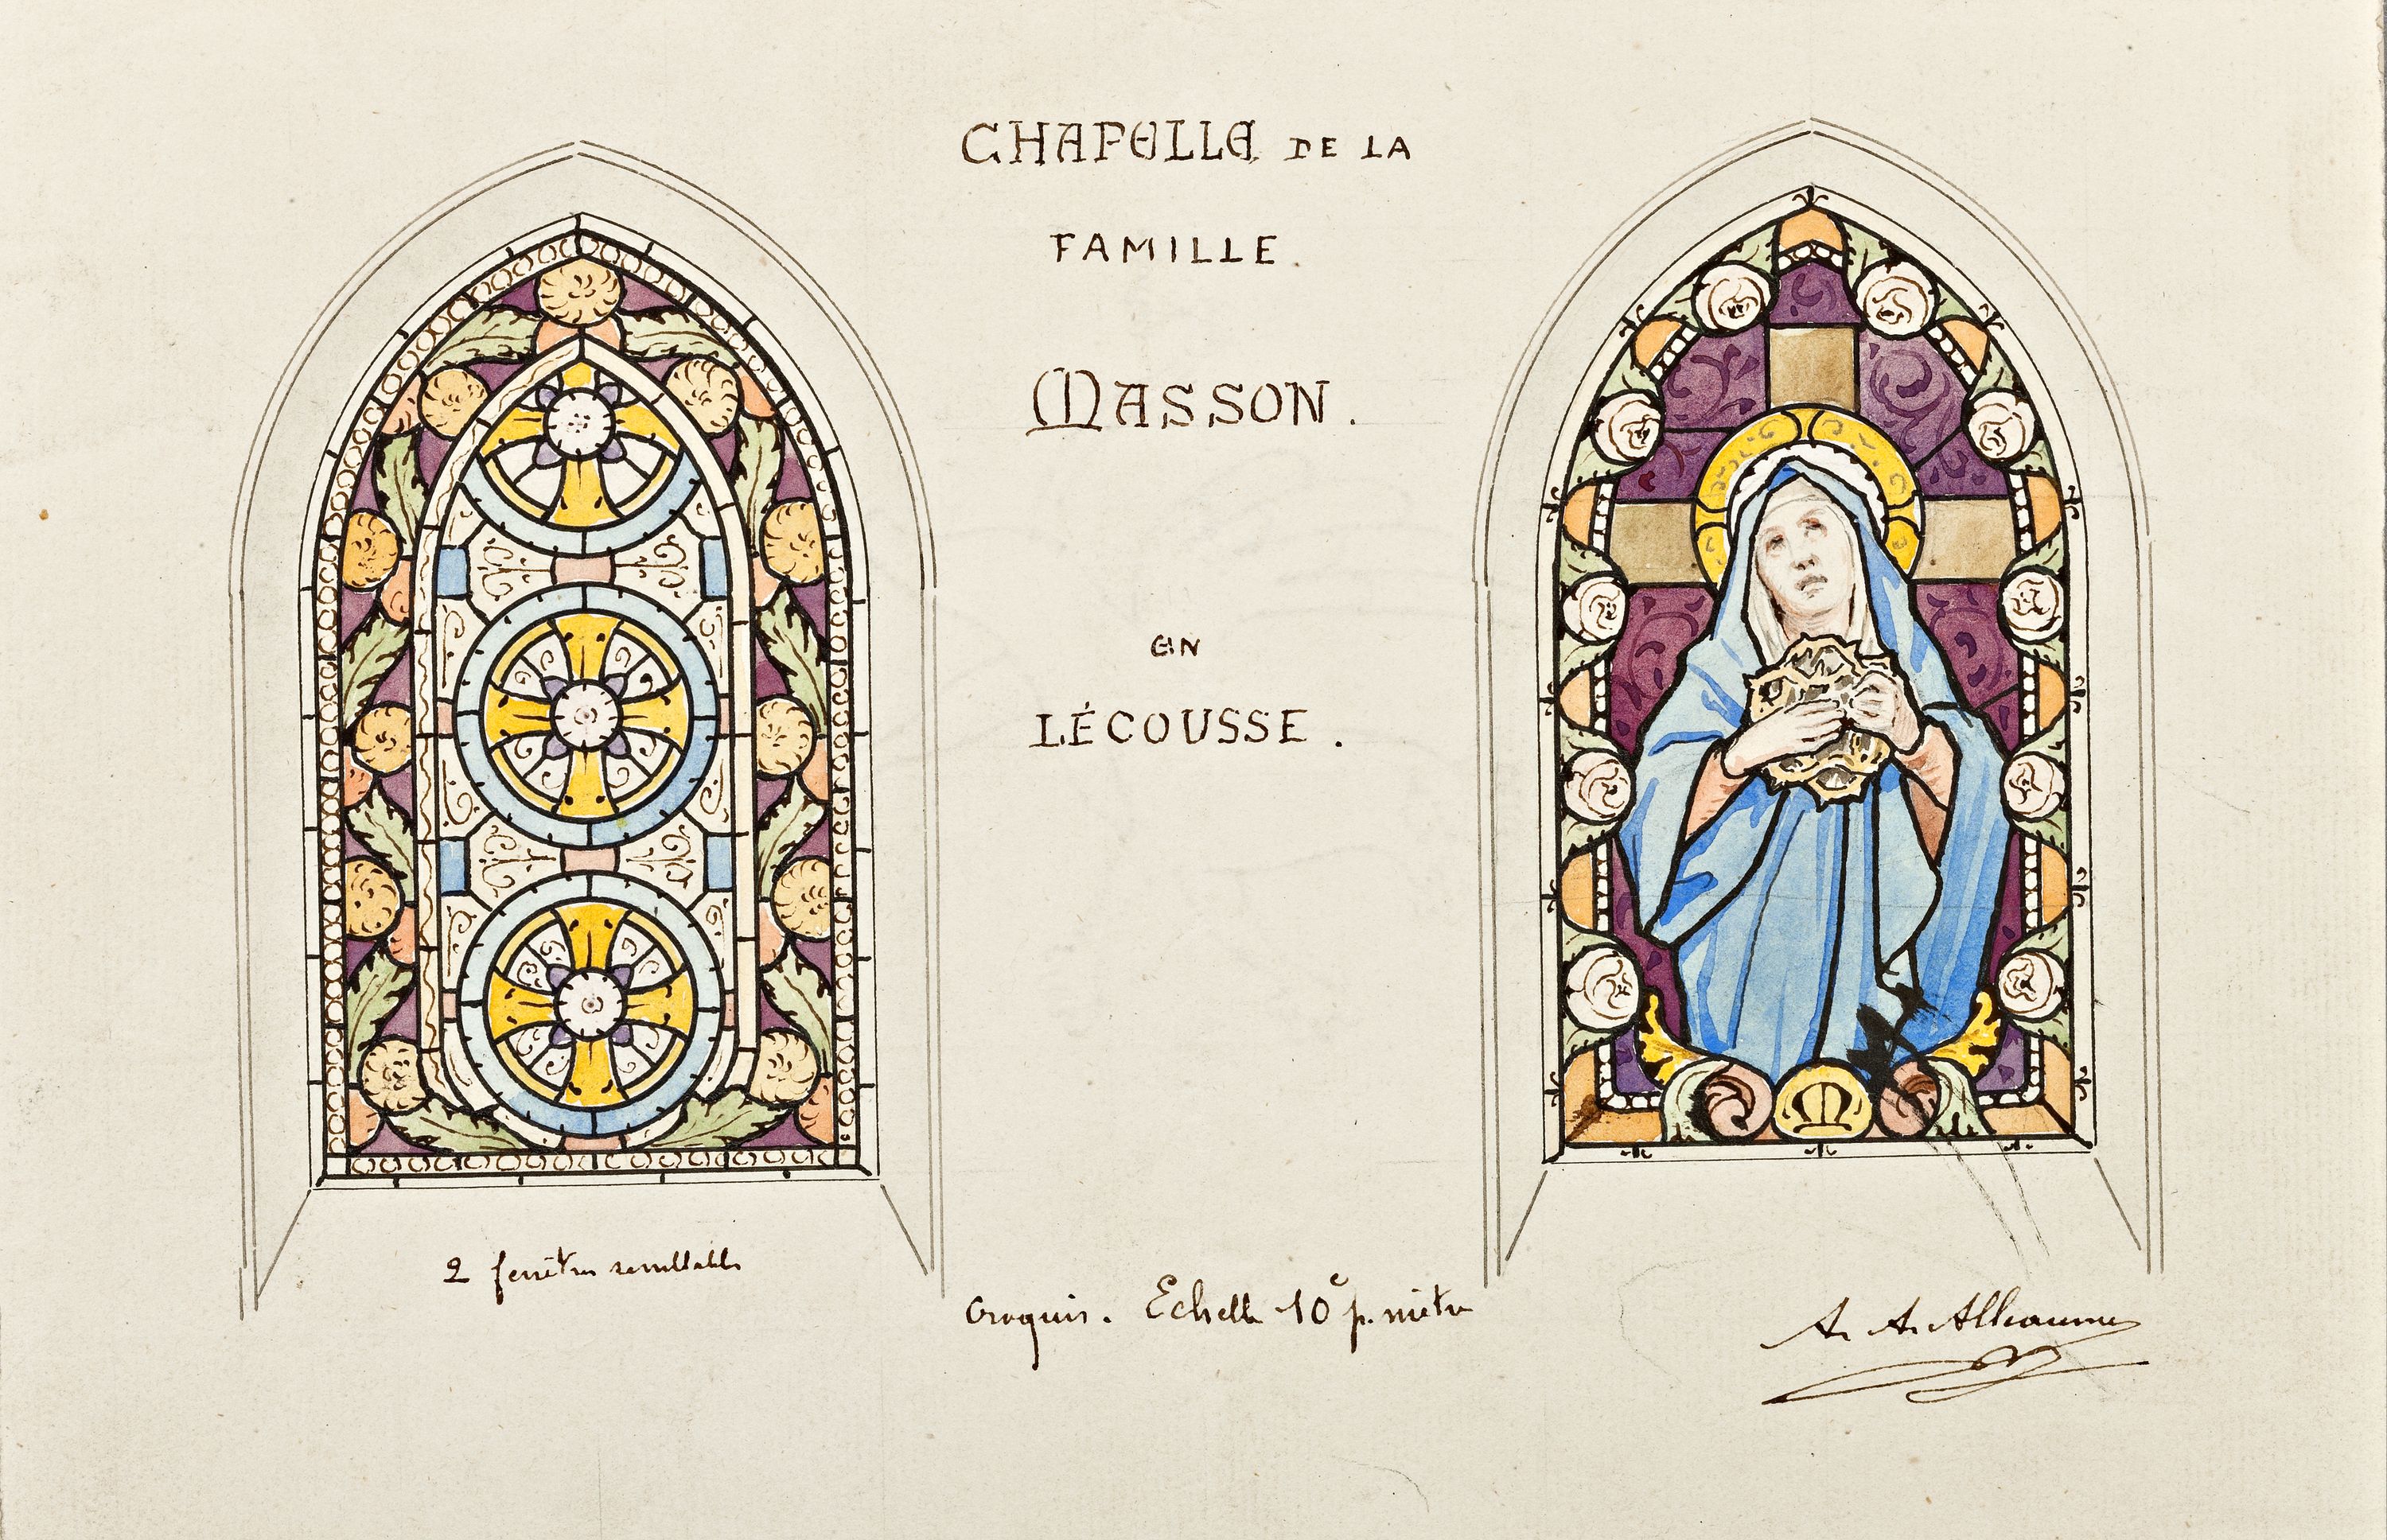 CHAPELLE DE LA
FAMILLE.
MASSON.
EN
LÉCOUSSE.
2 fenêtres semblables
Croquis. Echelle 10c p. mètre
A. A. Alleaume